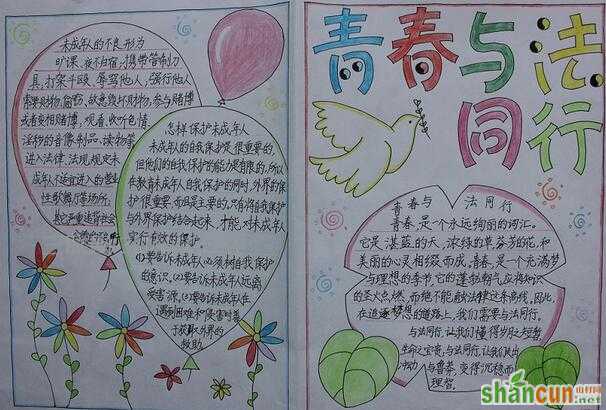 未成年人的不良形为
旷课、夜不归宿,携带管制刀
具,打架斗殴、辱骂他人,强行他人
索要财物,偷窃、故意毁坏财物,参与赌博
或者变相赌博,观看、收听色情
淫物的音像制品、读物等
进入法律、法规规定未
成年人不适宜进入的营业
性歌舞厅等场所,
其它严重违背社会
公德的不良行
怎样保护未成年人
未成年人的自我保护是很重要的,
但他们的自我保护的能力是有限的,所以
在教育未成年自我保护的同时,外界的保
护很重要,而且是主要的,只有将自我保护
与外界保护结合起来,才能对未成年人
实行有效的保护。
(1)要告诉未成年人必须树自我保护
的意识。(2)要告诉未成年人远离
侵害源。(3)要告诉未成年人在
遇到困难和侵害时善
于获取外界的
救助
青春与法
同行
青春与 法同行
青春,是一个永远绚丽的词汇。
它是湛蓝的天,浓绿的草芬芳的花和
美丽的心灵相缀而成。青春,是一个充满梦
与理想的季节,它的蓬勃朝气应将知识
的圣火点燃,而绝不能触动法律这条高线。因此,
在追逐梦想的道路上,我们需要与法同行,
与法同行,让我们懂得岁月之短暂,
生命之宝贵,与法同行,让我们决出
冲动 与鲁莽,变得沉稳而
理智。
shancun
山村网
.net